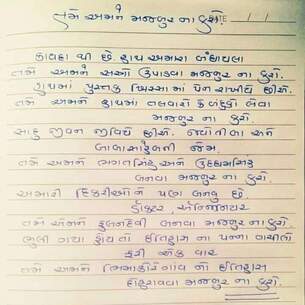 તમે અમને મજબુર ના કરો.
DATE / /
કાયદા થી છે હાથ અમારા બંધાયેલા
તમે અમને શસ્ત્રો ઉપાડવા મજબુર ના કરો.
હાથમાં પુસ્તક ખિસ્સામાં પેન રાખીયે છીએ.
તમે અમને હાથમાં તલવારો કે બંદુકો લેવા
મજબુર ના કરો.
સાદુ જીવન જીવિયે છીએ. જ્યોતીબા અને
બાબાસાહેબની જેમ
તમે અમને ભગતસિંહ અને ઉદ્દહામસિંહ
બનવા મજબુર ના કરો.
અમારી દિકરીઓને પણ બનવુ છે
ડૉક્ટર, એન્જિનયર
તમે એમને ફુલનદેવી બનવા મજબુર ના કરો.
ભુલી ગયા હોય તો ઈતિહાસ ના પન્ના વાંચીલો
ફરી એક વાર
તમે અમને ભિમાકોરેગાવ નો ઈતિહાસ
દોહરાવવા મજબુર ના કરો.